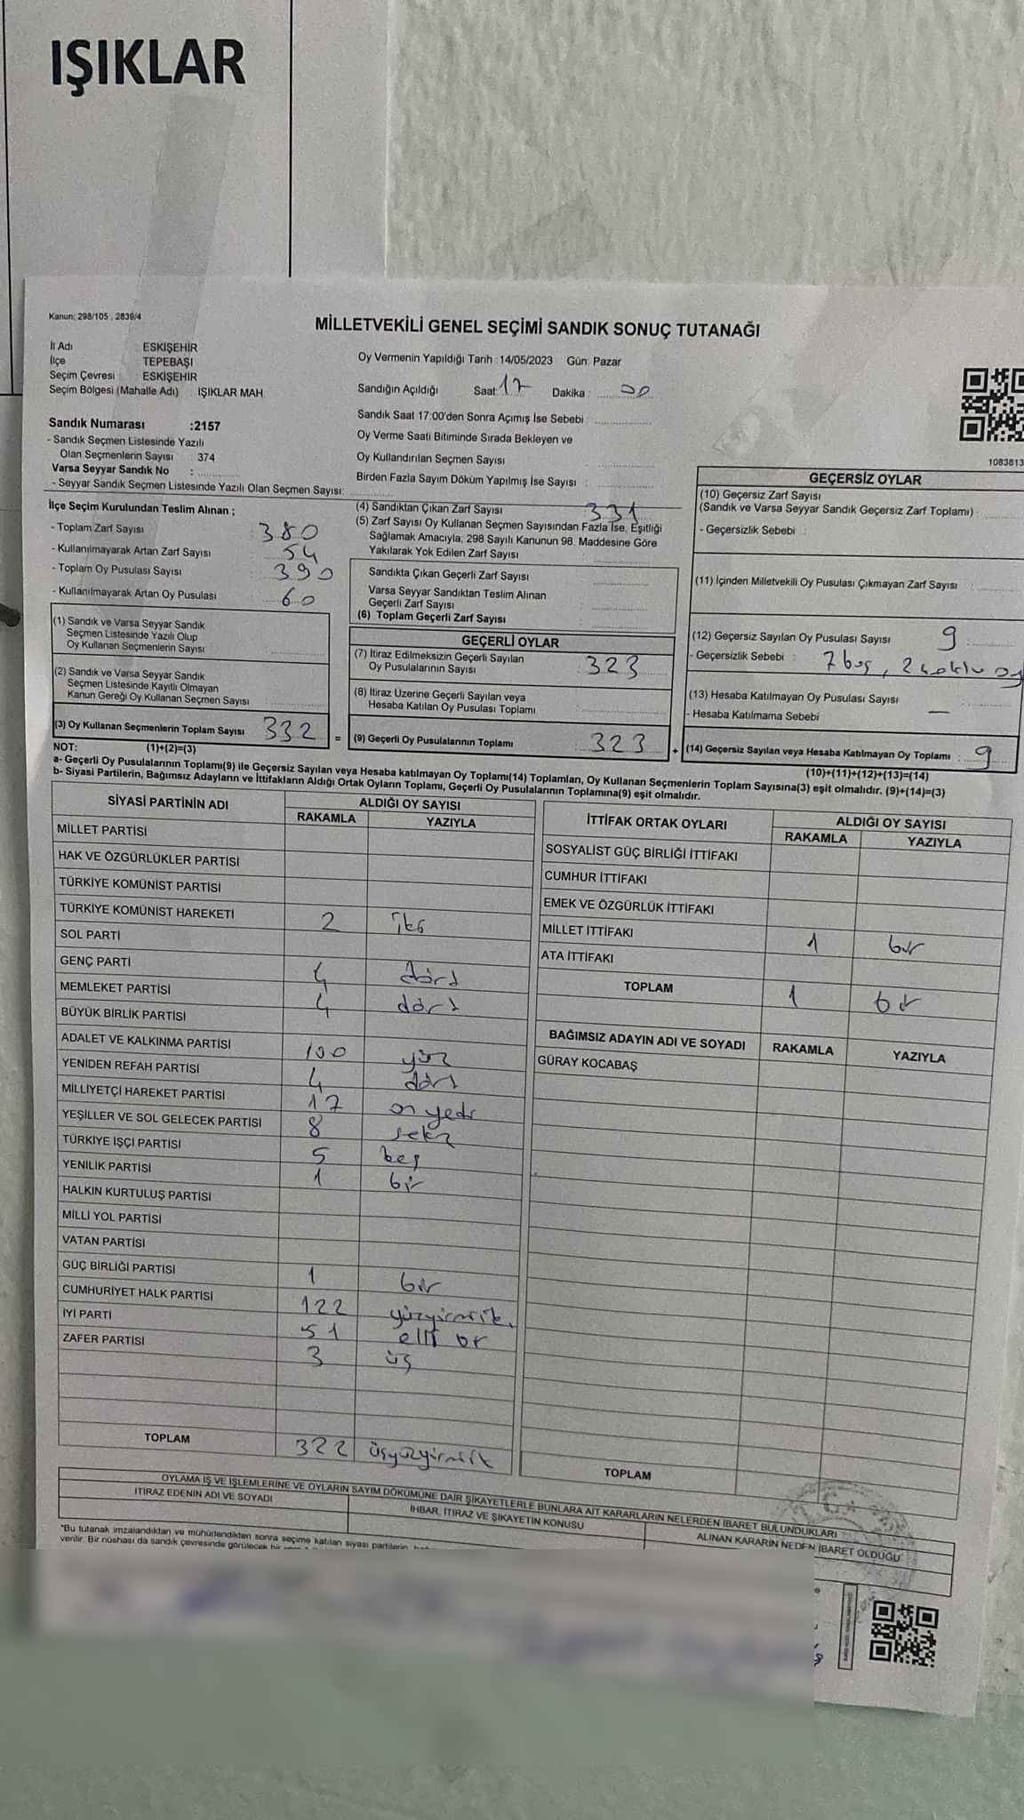 IŞIKLAR
Kanun: 298/105 , 2839/4
MİLLETVEKİLİ GENEL SEÇİMİ SANDIK SONUÇ TUTANAĞI
İl Adı ESKİŞEHİR
İlçe TEPEBAŞI
Seçim Çevresi ESKİŞEHİR
Seçim Bölgesi (Mahalle Adı) IŞIKLAR MAH
Oy Vermenin Yapıldığı Tarih :14/05/2023 Gün: Pazar
Sandığın Açıldığı Saat 17 Dakika : 00
Sandık Saat 17:00'den Sonra Açımış İse Sebebi
Oy Verme Saati Bitiminde Sırada Bekleyen ve
Oy Kullandırılan Seçmen Sayısı
Birden Fazla Sayım Döküm Yapılmış İse Sayısı :
Sandık Numarası :2157
- Sandık Seçmen Listesinde Yazılı
Olan Seçmenlerin Sayısı 374
Varsa Seyyar Sandık No :
- Seyyar Sandık Seçmen Listesinde Yazılı Olan Seçmen Sayısı:
1083813
İlçe Seçim Kurulundan Teslim Alınan ;
- Toplam Zarf Sayısı 380
- Kullanılmayarak Artan Zarf Sayısı 54
- Toplam Oy Pusulası Sayısı 390
- Kullanılmayarak Artan Oy Pusulası 60
(1) Sandık ve Varsa Seyyar Sandık
Seçmen Listesinde Yazılı Olup
Oy Kullanan Seçmenlerin Sayısı
(2) Sandık ve Varsa Seyyar Sandık
Seçmen Listesinde Kayıtlı Olmayan
Kanun Gereği Oy Kullanan Seçmen Sayısı
(3) Oy Kullanan Seçmenlerin Toplam Sayısı 332 =
(4) Sandıktan Çıkan Zarf Sayısı 331
(5) Zarf Sayısı Oy Kullanan Seçmen Sayısından Fazla İse, Eşitliği
Sağlamak Amacıyla, 298 Sayılı Kanunun 98. Maddesine Göre
Yakılarak Yok Edilen Zarf Sayısı
Sandıkta Çıkan Geçerli Zarf Sayısı
Varsa Seyyar Sandıktan Teslim Alınan
Geçerli Zarf Sayısı
(6) Toplam Geçerli Zarf Sayısı
GEÇERLİ OYLAR
(7) İtiraz Edilmeksizin Geçerli Sayılan
Oy Pusulalarının Sayısı 323
(8) İtiraz Üzerine Geçerli Sayılan veya
Hesaba Katılan Oy Pusulası Toplamı
(9) Geçerli Oy Pusulalarının Toplamı 323 +
GEÇERSİZ OYLAR
(10) Geçersiz Zarf Sayısı
(Sandık ve Varsa Seyyar Sandık Geçersiz Zarf Toplamı)
- Geçersizlik Sebebi
(11) İçinden Milletvekili Oy Pusulası Çıkmayan Zarf Sayısı
(12) Geçersiz Sayılan Oy Pusulası Sayısı 9
- Geçersizlik Sebebi : 7 boş, 2 çoklu oy
(13) Hesaba Katılmayan Oy Pusulası Sayısı —
- Hesaba Katılmama Sebebi
(14) Geçersiz Sayılan veya Hesaba Katılmayan Oy Toplamı 9
NOT: (1)+(2)=(3)
(10)+(11)+(12)+(13)=(14)
a- Geçerli Oy Pusulalarının Toplamı(9) ile Geçersiz Sayılan veya Hesaba katılmayan Oy Toplamı(14) Toplamları, Oy Kullanan Seçmenlerin Toplam Sayısına(3) eşit olmalıdır. (9)+(14)=(3)
b- Siyasi Partilerin, Bağımsız Adayların ve İttifakların Aldığı Ortak Oyların Toplamı, Geçerli Oy Pusulalarının Toplamına(9) eşit olmalıdır.
SİYASİ PARTİNİN ADI ALDIĞI OY SAYISI
RAKAMLA YAZIYLA
MİLLET PARTİSİ
HAK VE ÖZGÜRLÜKLER PARTİSİ
TÜRKİYE KOMÜNİST PARTİSİ
TÜRKİYE KOMÜNİST HAREKETİ 2 iki
SOL PARTİ
GENÇ PARTİ 4 dört
MEMLEKET PARTİSİ 4 dört
BÜYÜK BİRLİK PARTİSİ
ADALET VE KALKINMA PARTİSİ 100 yüz
YENİDEN REFAH PARTİSİ 4 dört
MİLLİYETÇİ HAREKET PARTİSİ 17 on yedi
YEŞİLLER VE SOL GELECEK PARTİSİ 8 sekiz
TÜRKİYE İŞÇİ PARTİSİ 5 beş
YENİLİK PARTİSİ 1 bir
HALKIN KURTULUŞ PARTİSİ
MİLLİ YOL PARTİSİ
VATAN PARTİSİ
GÜÇ BİRLİĞİ PARTİSİ 1 bir
CUMHURİYET HALK PARTİSİ 122 yüzyirmiik
İYİ PARTİ 51 elli bir
ZAFER PARTİSİ 3 üç
TOPLAM 322 üçyüzyirmiik
İTTİFAK ORTAK OYLARI ALDIĞI OY SAYISI
RAKAMLA YAZIYLA
SOSYALİST GÜÇ BİRLİĞİ İTTİFAKI
CUMHUR İTTİFAKI
EMEK VE ÖZGÜRLÜK İTTİFAKI
MİLLET İTTİFAKI 1 bir
ATA İTTİFAKI
TOPLAM 1 bir
BAĞIMSIZ ADAYIN ADI VE SOYADI RAKAMLA YAZIYLA
GÜRAY KOCABAŞ
TOPLAM
OYLAMA İŞ VE İŞLEMLERİNE VE OYLARIN SAYIM DÖKÜMÜNE DAİR ŞİKAYETLERLE BUNLARA AİT KARARLARIN NELERDEN İBARET BULUNDUKLARI
İTİRAZ EDENİN ADI VE SOYADI İHBAR, İTİRAZ VE ŞİKAYETİN KONUSU ALINAN KARARIN NEDEN İBARET OLDUĞU
"Bu tutanak imzalandıktan ve mühürlendikten sonra seçime katılan siyasi partilerin,
verilir. Bir nüshası da sandık çevresinde görülecek bir